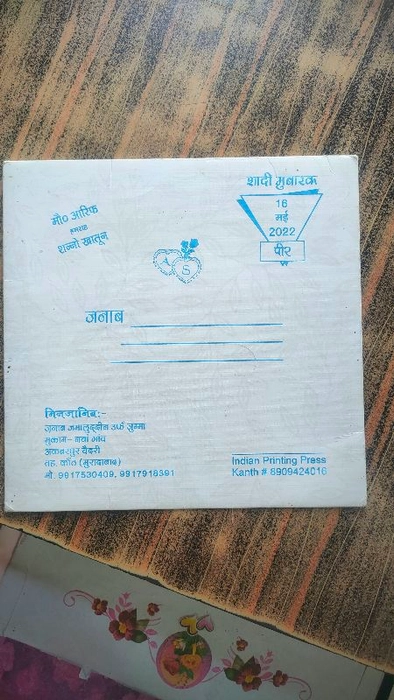 शादी मुबारक
16
मई
2022
पीर
मौ० आरिफ
हमराह
शन्नो खातून
A S
जनाब
मिनजानिब:-
जनाब जमालुद्दीन उर्फ जुम्मा
मुकाम- नया गांव
अकबरपुर चैदरी
तह. काँठ (मुरादाबाद)
मो. 9917530409, 9917918391
Indian Printing Press
Kanth # 8909424016